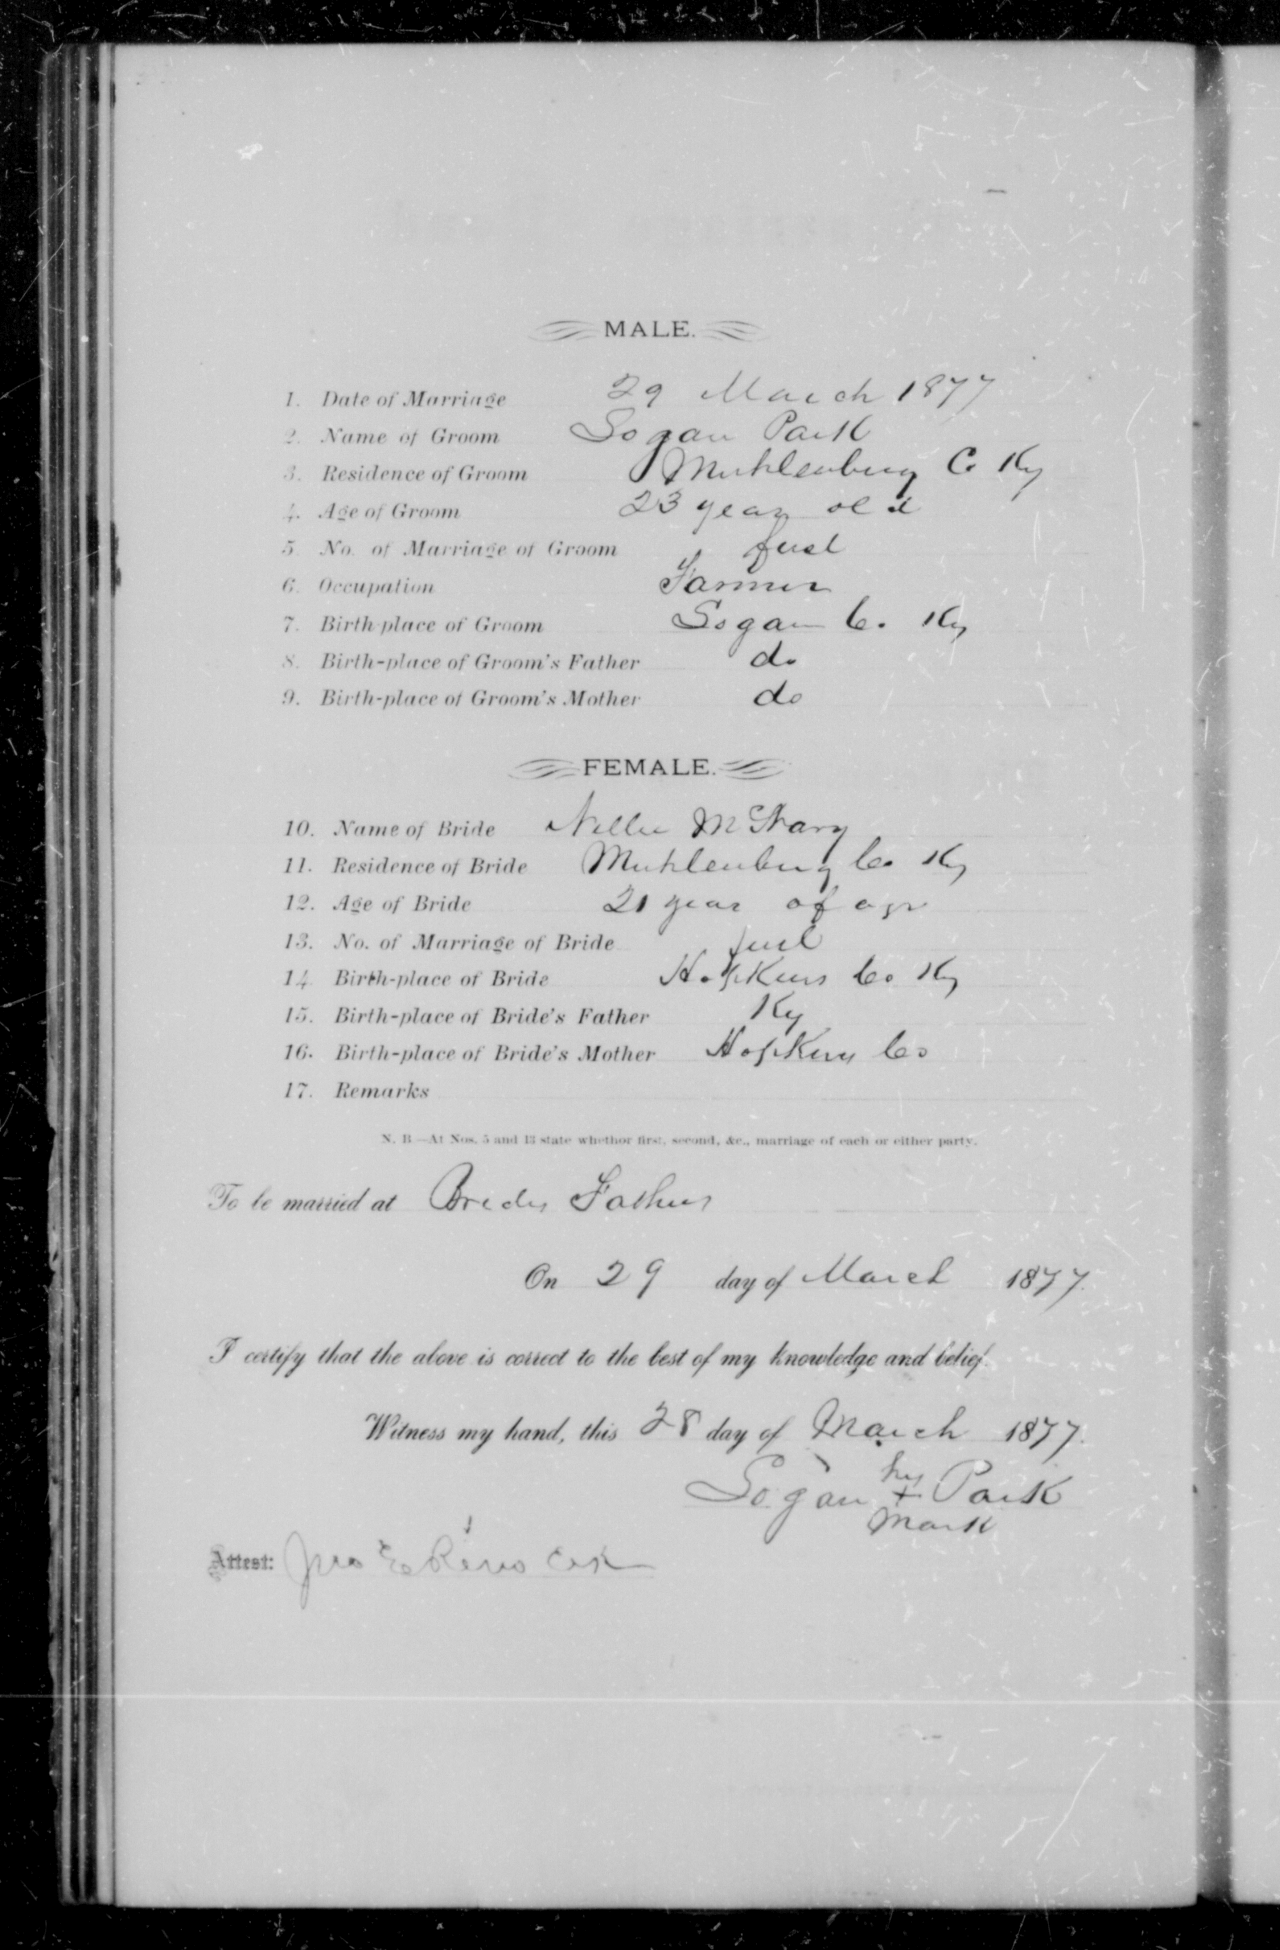 MALE.
1. Date of Marriage 29 March 1877
2. Name of Groom Logan Park
3. Residence of Groom Muhlenburg C. Ky
4. Age of Groom 23 years old
5. No. of Marriage of Groom first
6. Occupation Farmer
7. Birth-place of Groom Logan Co. Ky
8. Birth-place of Groom's Father do
9. Birth-place of Groom's Mother do
FEMALE.
10. Name of Bride Nellie McNary
11. Residence of Bride Muhlenburg Co. Ky
12. Age of Bride 21 years of age
13. No. of Marriage of Bride first
14 Birth-place of Bride Hopkins Co Ky
15. Birth-place of Bride's Father Ky
16. Birth-place of Bride's Mother Hopkins Co
17. Remarks
N. B.—At Nos. 5 and 13 state whethor first, second, &c., marriage of each or either party.
To be married at Brides Fathers
On 29 day of March 1877.
I certify that the above is correct to the best of my knowledge and belief.
Witness my hand, this 28 day of March 1877.
his
Logan + Park
mark
Attest: Jno E Reno Clk